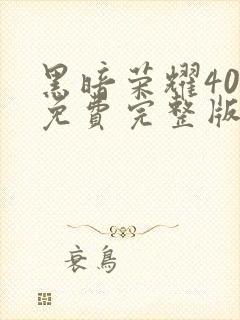 黑暗荣耀40
免费完整版
衰鸟